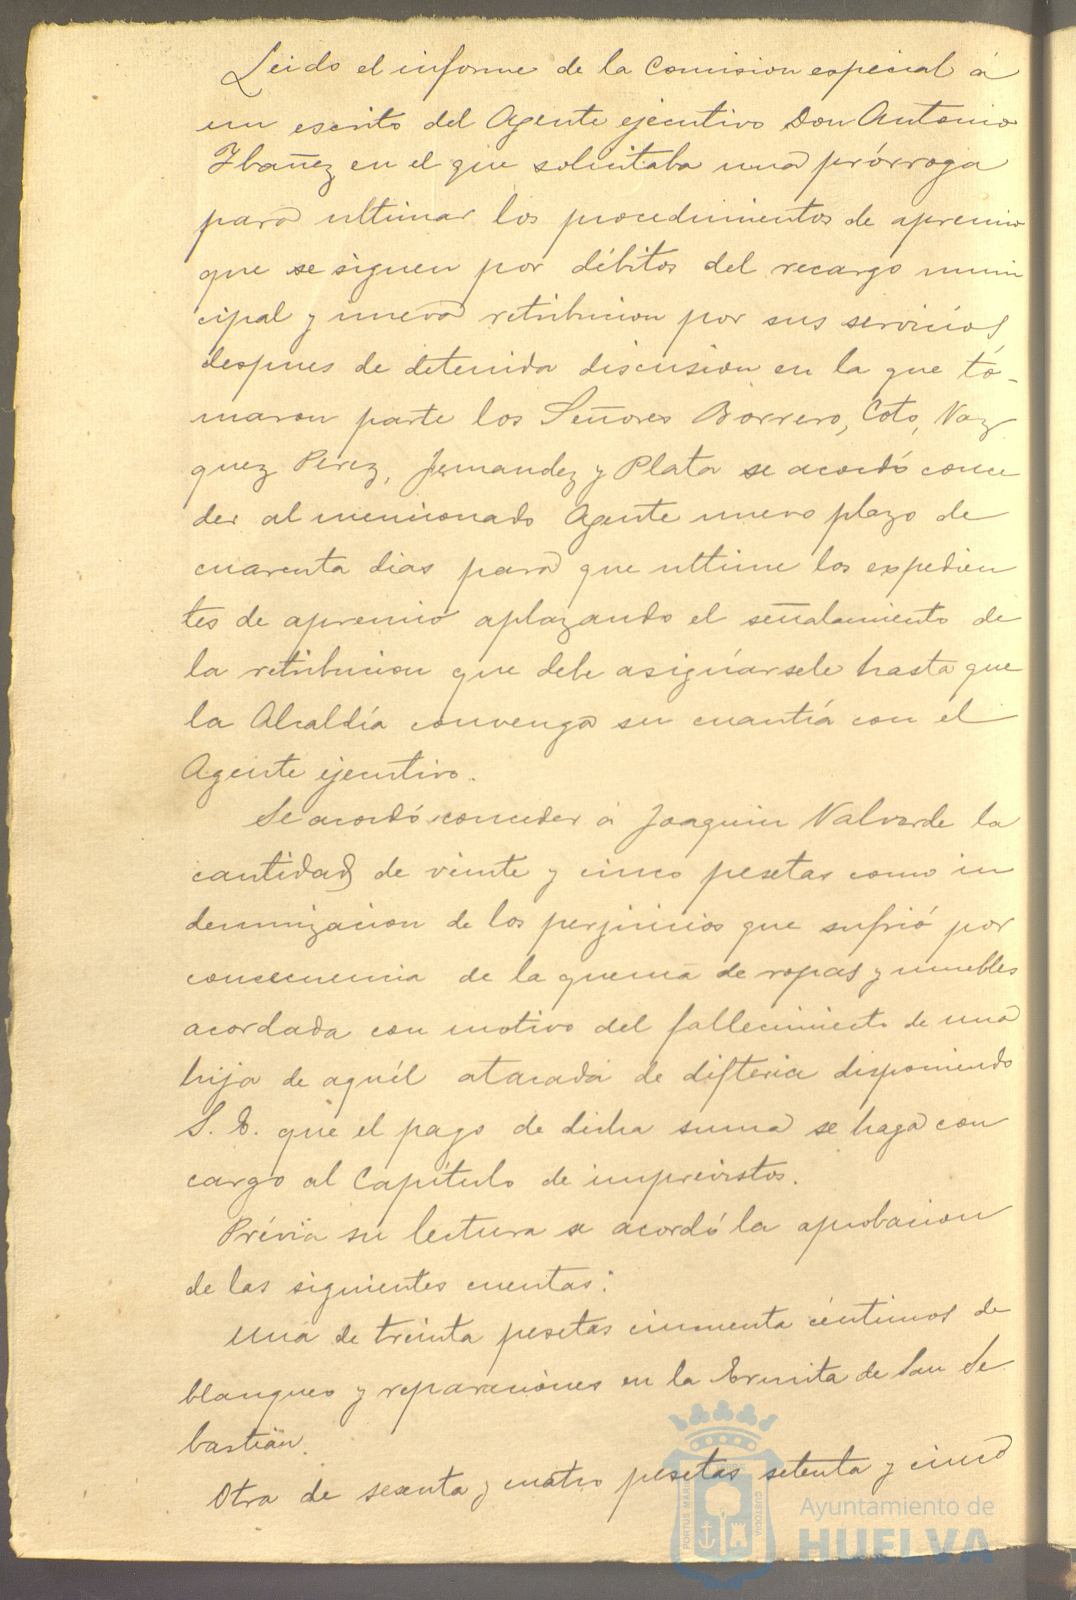 Leido el informe de la Comision especial á
un escrito del Agente ejecutivo Don Antonio
Ibañez en el que solicitaba una prórroga
para ultimar los procedimientos de apremio
que se siguen por débitos del recargo muni
cipal y nueva retribucion por sus servicios,
despues de detenida discusion en la que to-
maron parte los Señores Borrero, Coto, Vaz
quez Perez, Jernandez y Plata se acordó conce
der al mencionado Agente nuevo plazo de
cuarenta dias para que ultime los expedien
tes de apremio aplazando el señalamiento de
la retribucion que debe asignarsele hasta que
la Alcaldía convenga su cuantía con el
Agente ejecutivo.
Se acordó conceder á Joaquin Valverde la
cantidad de veinte y cinco pesetas como in
demnizacion de los perjuicios que sufrió por
consecuencia de la quema de ropas y muebles
acordada con motivo del fallecimiento de una
hija de aquél atacada de difteria disponiendo
S. E. que el pago de dicha suma se haga con
cargo al Capítulo de imprevistos.
Prévia su lectura se acordó la aprobacion
de las siguientes cuentas:
Una de treinta pesetas cincuenta céntimos de
blanqueo y reparaciones en la Ermita de San Se
bastian.
Otra de sesenta y cuatro pesetas setenta y cinco
PORTUS MARIS
CUSTODIA
Ayuntamiento de
HUELVA